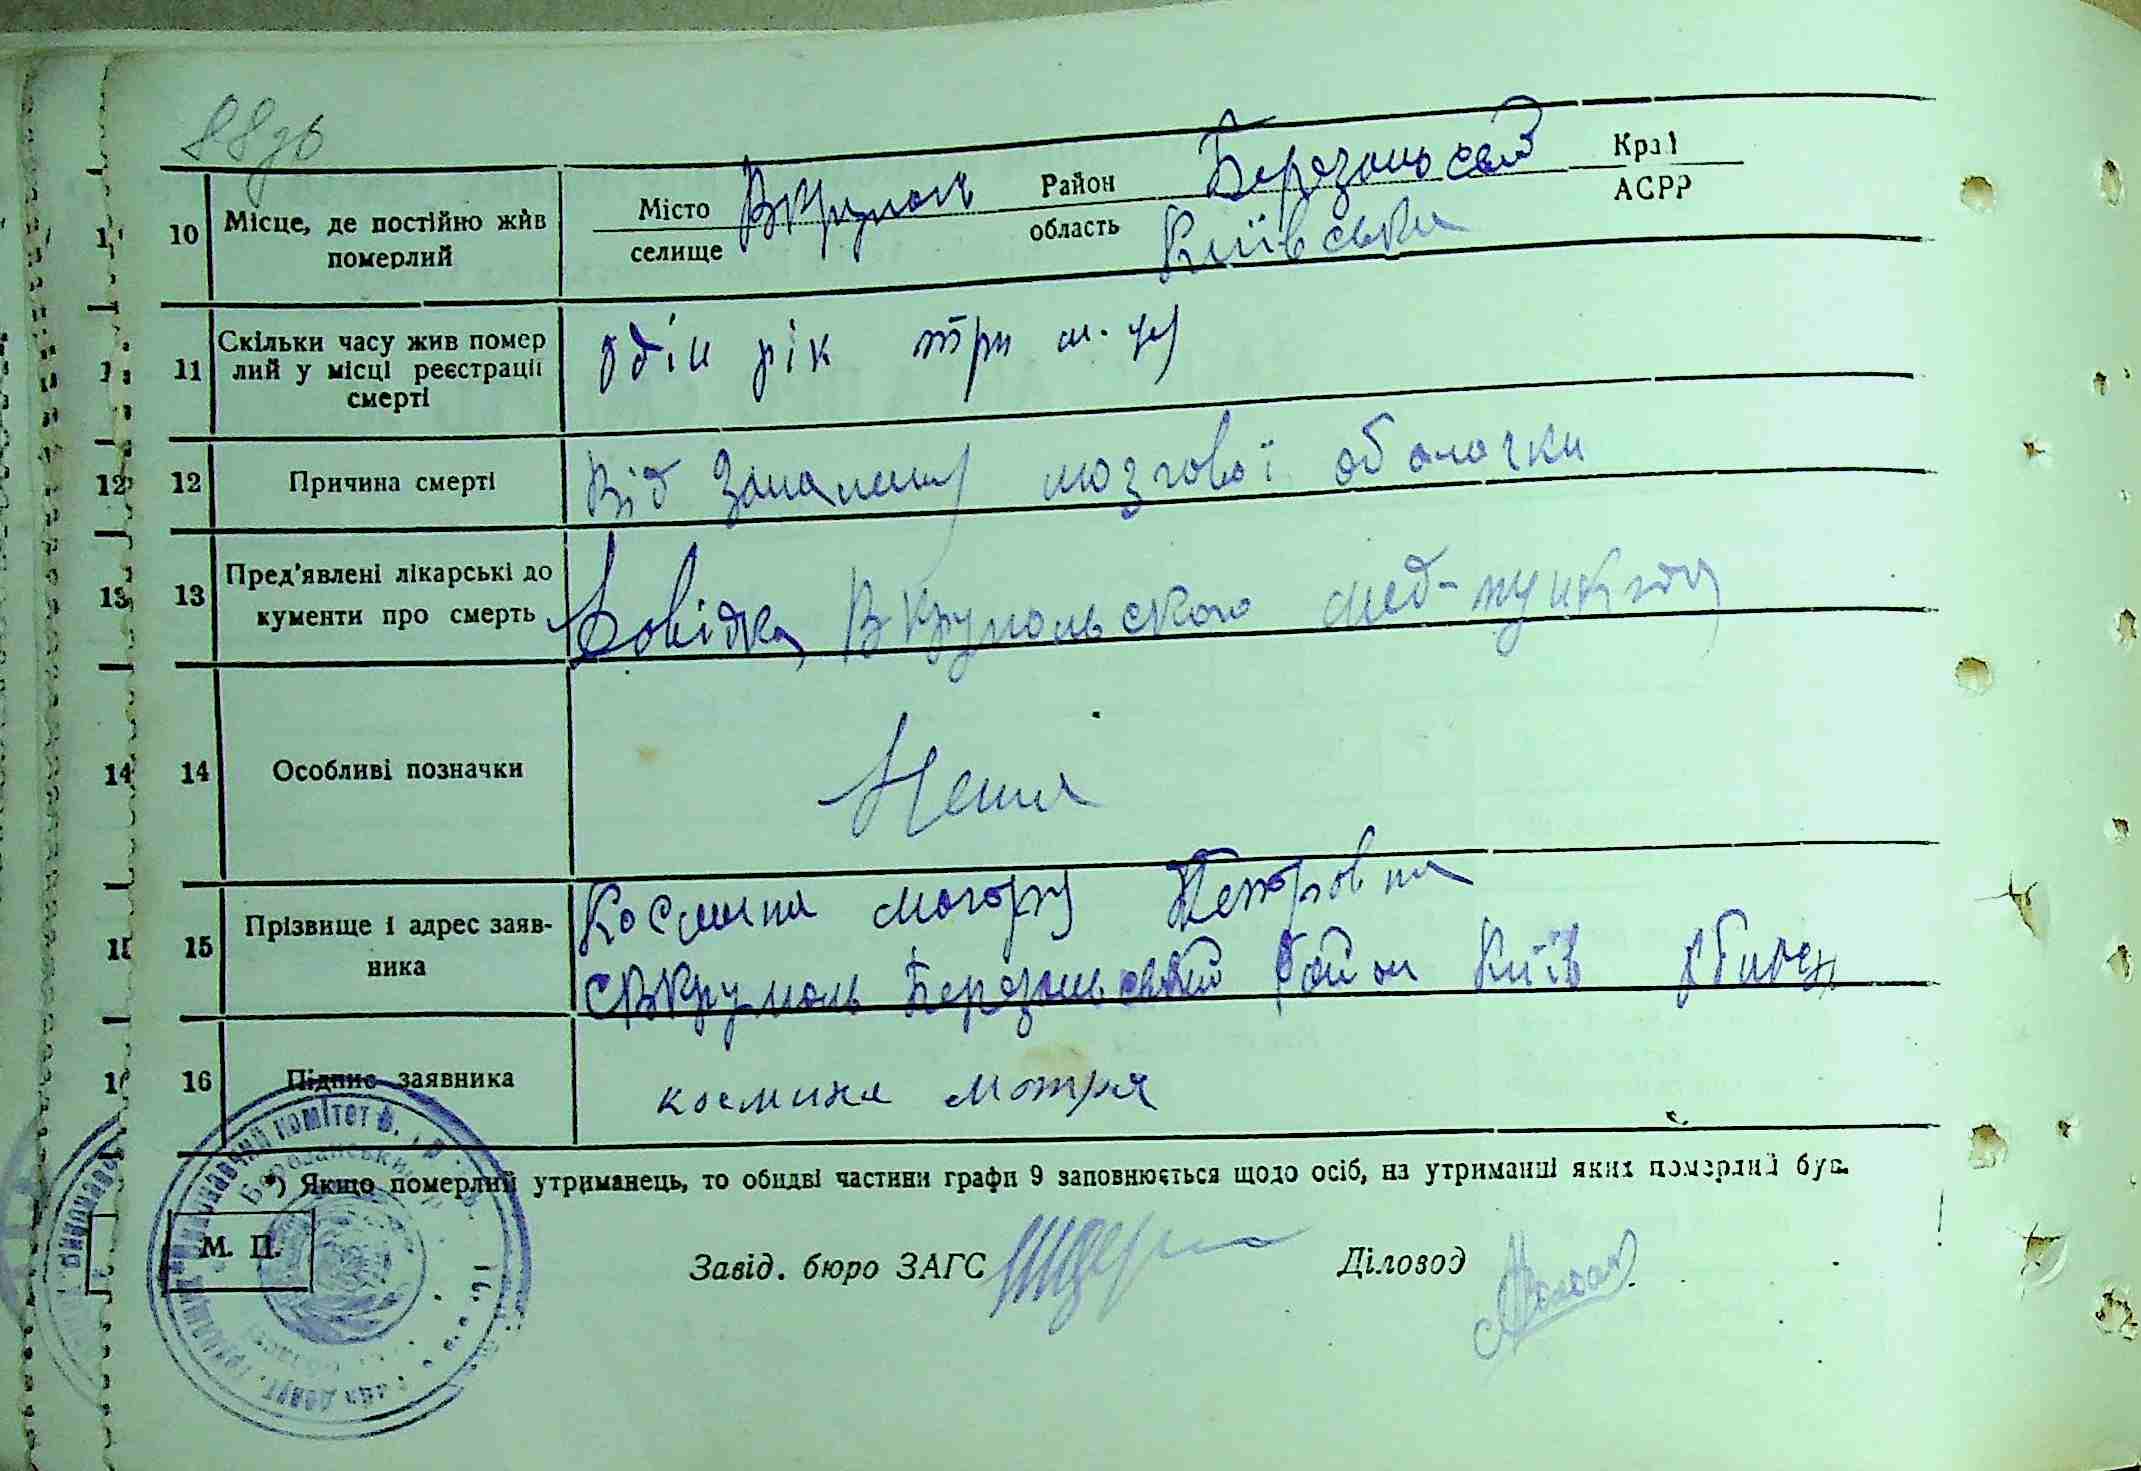 88 зв
10 Місце, де постійно жив померлий Місто селище ВКруполь Район область Березанський Київська Край АСРР
11 Скільки часу жив помер лий у місці реєстрації смерті одін рік три м-ці
12 12 Причина смерті Від Запалення мозгової оболочки
13 13 Пред'явлені лікарські до кументи про смерть Довідка ВКрупольского мед-пункта
14 14 Особливі позначки Нема
15 15 Прізвище і адрес заяв- ника Космина Петровна
с ВКруполь Березанський район Київ
16 Підпис заявника космина мотря
*) Якщо померлий утриманець, то обидві частини графи 9 заповнюється щодо осіб, на утриманні яких померлий був.
М. П.
Завід. бюро ЗАГС Діловод